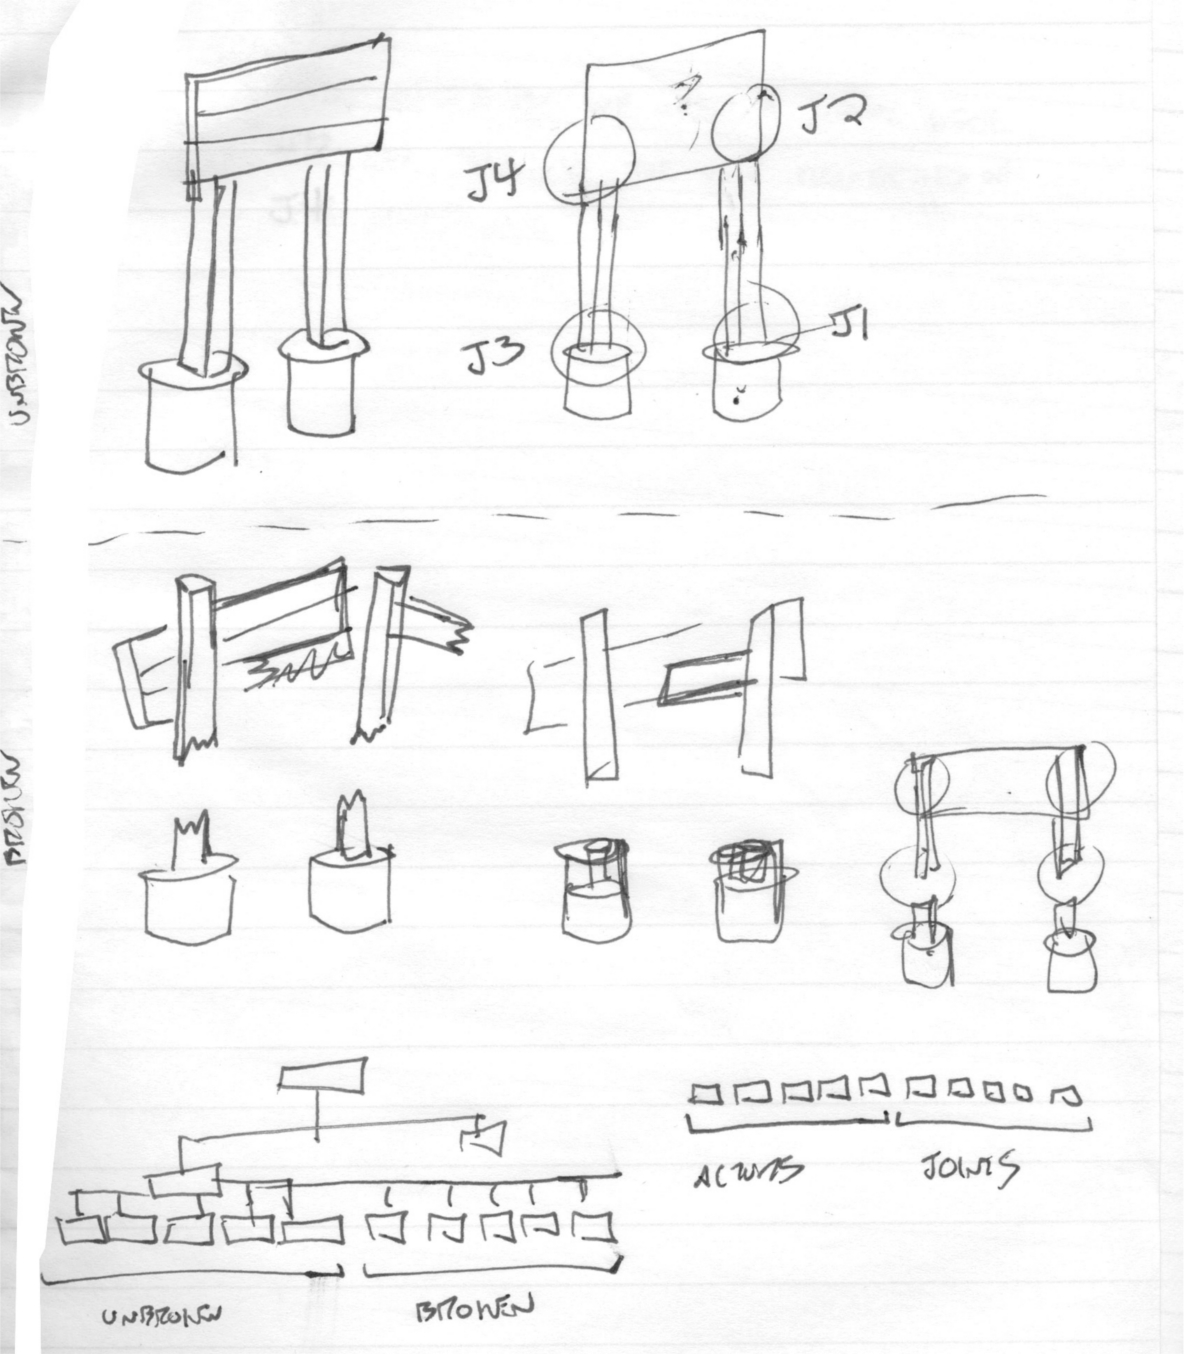 UNBROKEN
J4
J2
J3
J1
BROKEN
ACTORS
JOINTS
UNBROKEN
BROKEN